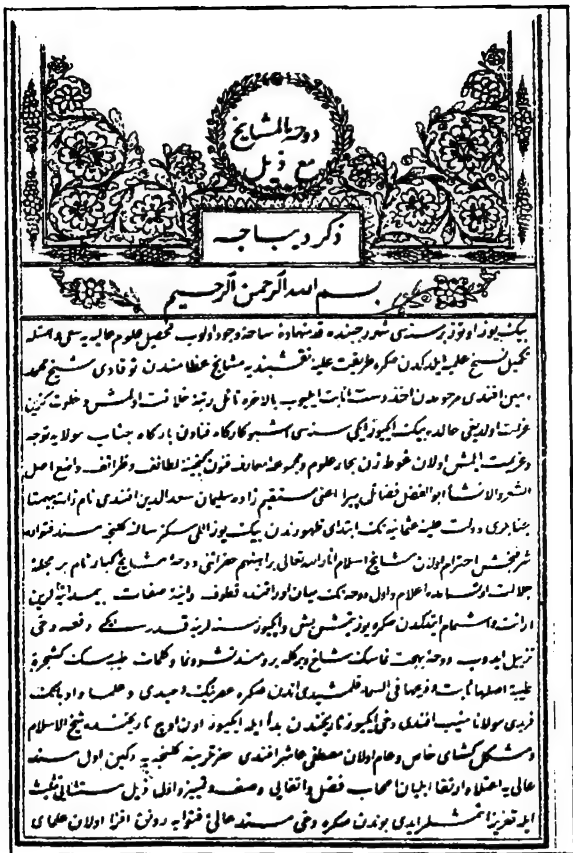 دوحة المشايخ
مع ذيل
ذكر ديباجه
بسم الله الرحمن الرحيم
بيك يوز اوتوز برسنه‌سى شهر رجبنده قدمنهادهٔ ساحهٔ وجود اولوب تحصيل علوم عاليه‌يه سعى و
تكميل نسخ عليه ايلدكدن صكره طريقت عليهٔ نقشبنديه مشايخ عظامندن توقادى شيخ محمد
امين افندى مرحومدن اخذ دست انابت ايليوب بالاخره نائل رتبهٔ خلافت اولمش و خلوت كزين
عزلت اولديغى حالده بيك ايكيوز ايكى سنه‌سى اشبو كاركاه فنادن باركاه جناب مولايه توجه
و عزيمت ايلمش اولان غوطه زن بحار علوم ومجموعهٔ معارف فنون كنجينهٔ لطائف و ظرائف واضع اصل
الشعر والانشا ابو الفضل فضائل پيرا اعنى مستقيم زاده سليمان سعد الدين افندى نام ذات بيهمتا
دولت عليهٔ عثمانيه نك ابتداى ظهورندن بيك يوز اللى سكز سالنه كلنجه مسند فتوايه
شرفبخش احترام اولان مشايخ اسلام انار الله تعالى براهينهم حضراتنى دوحهٔ مشايخ كبار نام بر مجلهٔ
جلالت اعلام و اول دوحه نك ميان اوراقنده قطوف دانيهٔ صفات
ارائت و اشمام ايتدكدن صكره يوز يتمش بش و ايكيوز سنه لرينه قدر ايكى دفعه دخى
تذييل ايدوب دوحهٔ بهجت شاخ و بركله برومند نشو و نما و كلمات طيبه سنك كشجرة
طيبة اصلها ثابت وفرعها فى السماء قلمشيدى اندن صكره عصرينك وحيدى و علما و ادبانك
فريدى مولانا منيب افندى دخى ايكيوز تاريخندن بدأ ايله ايكيوز اون اوچ تاريخنده شيخ الاسلام
و مشكل كشاى خاص و عام اولان مصطفى عاشر افندى حضرتلرينه كلنجه يه دكين اول مسند
عالى يه اعتلا و ارتقا ايليان اصحاب فضل و اتقايى و صفه ذيل مستثنايى تثليث
ايله تعزيز ايتمشلر ايدى بوندن صكره دخى مسند عالئ فتوايه رونق افزا اولان علماى